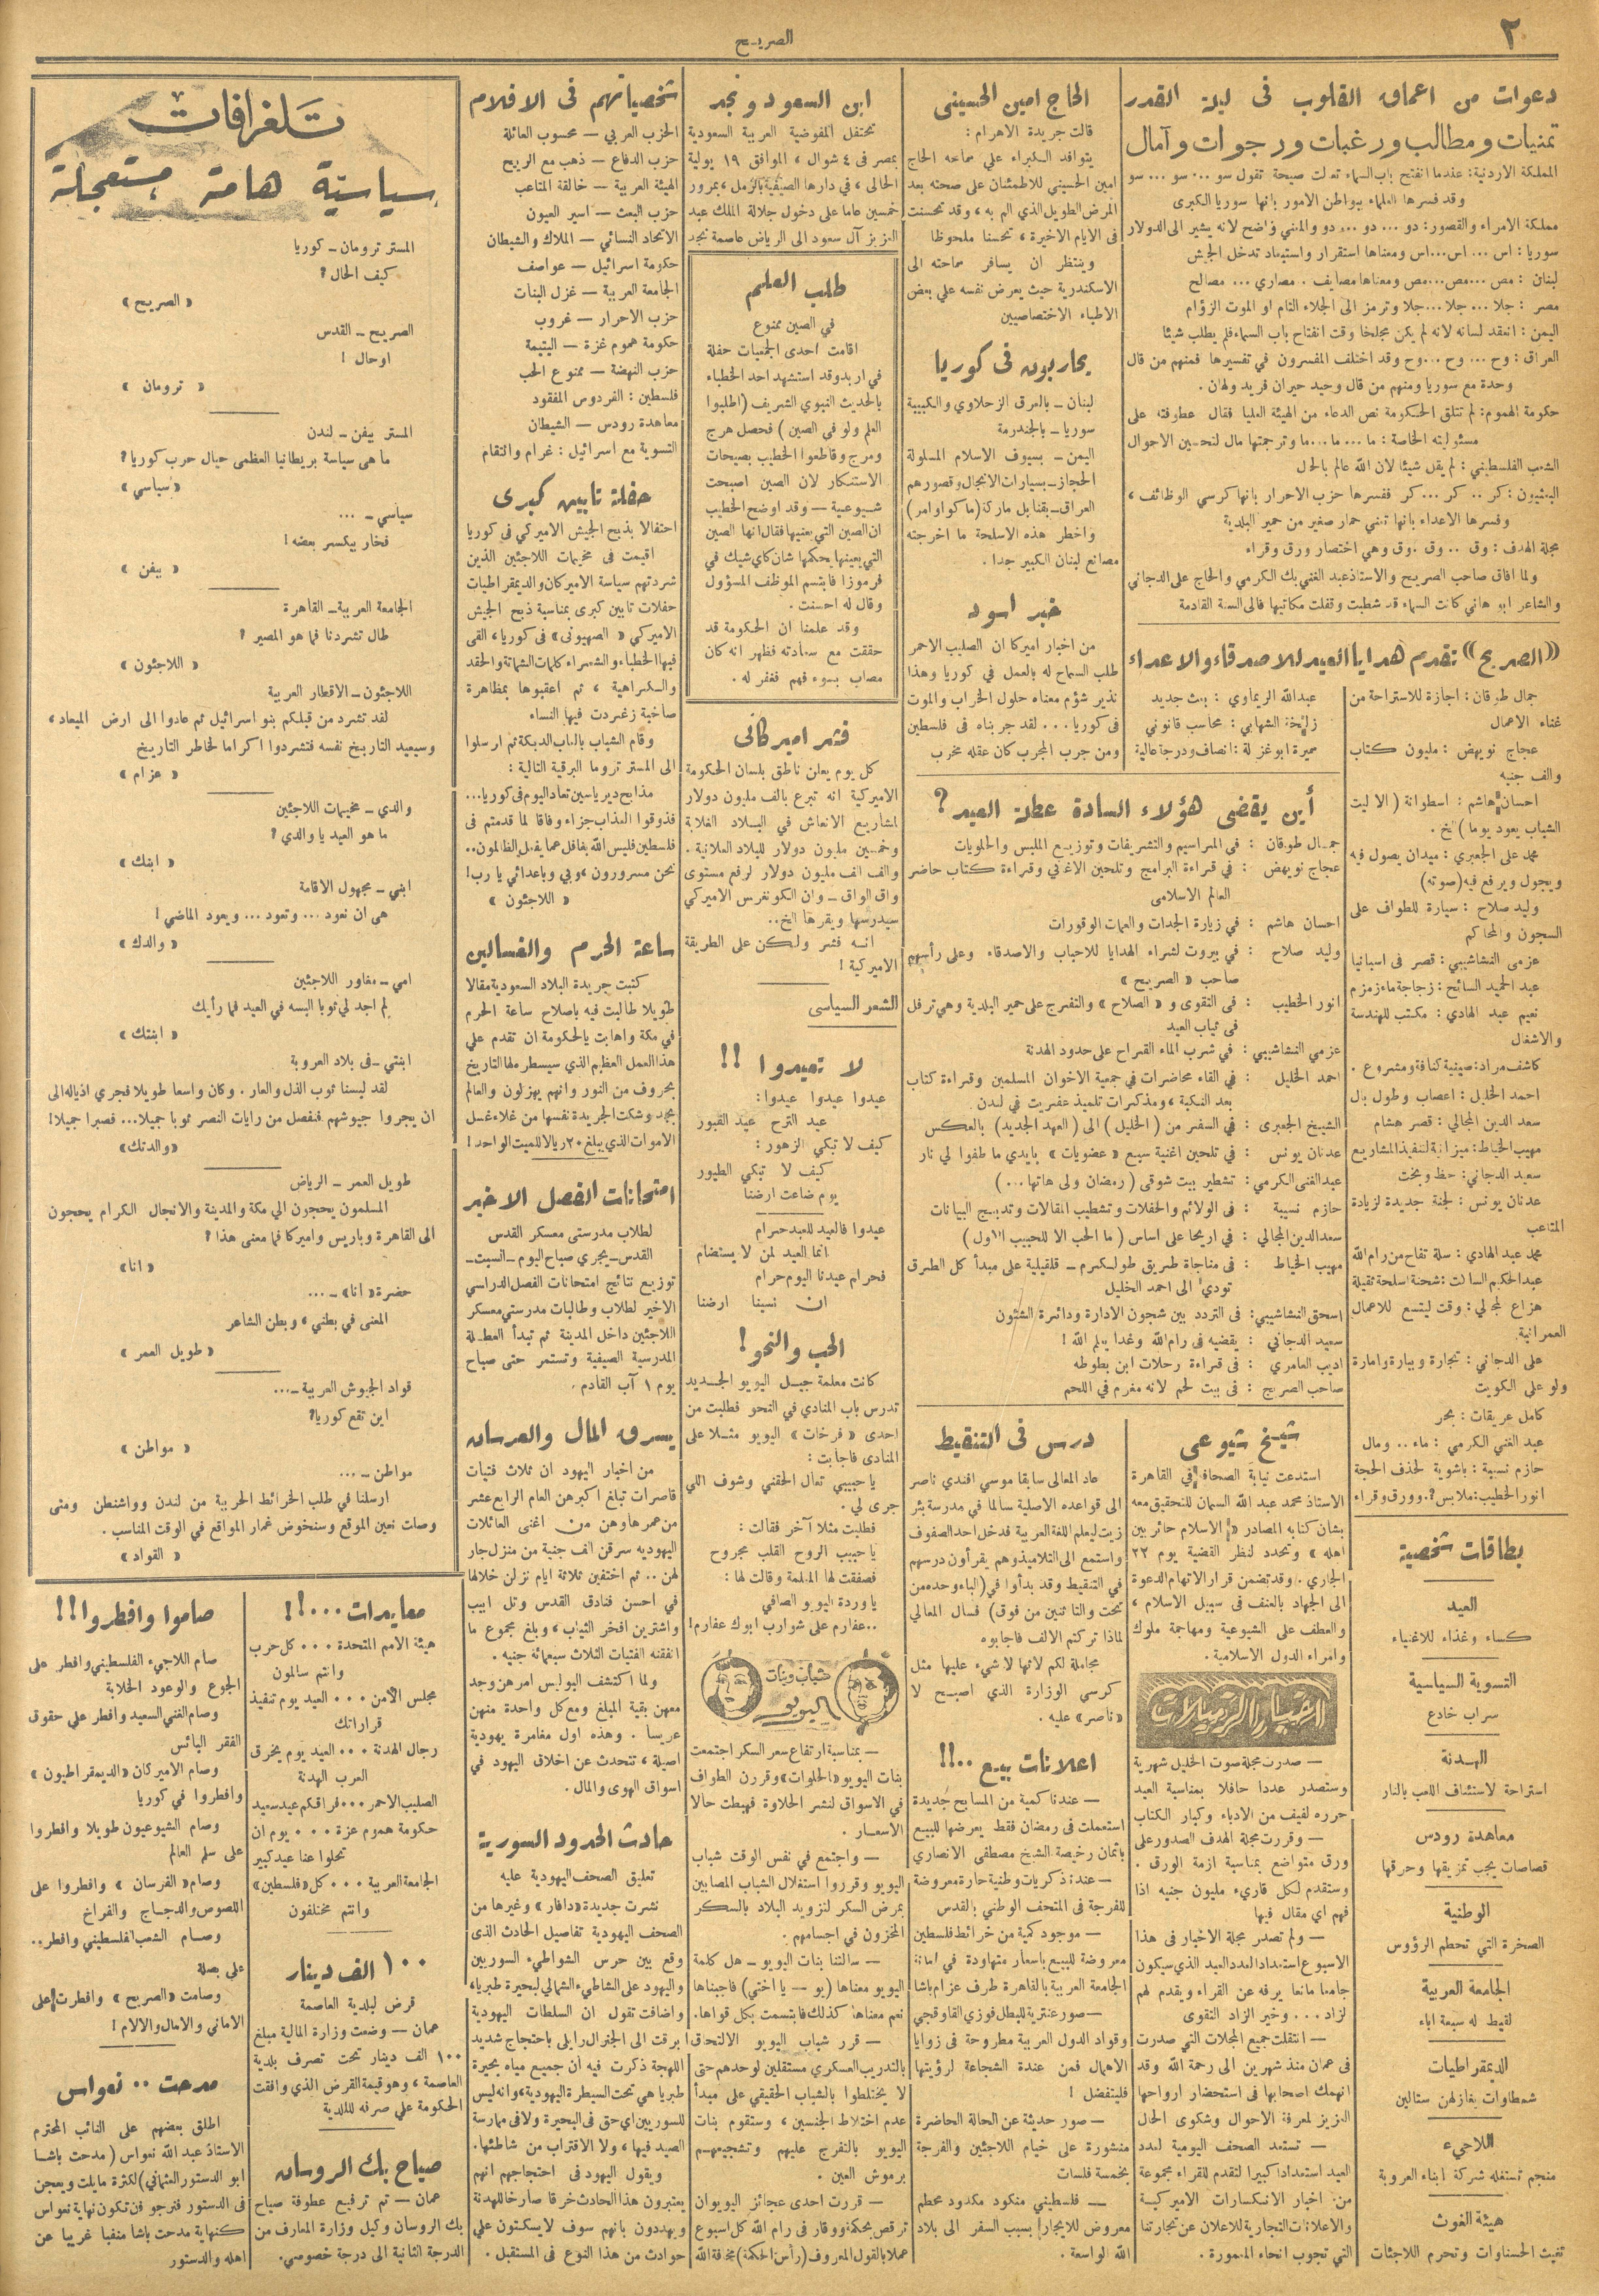 ٢
الصريح
دعوات من اعماق القلوب فى ليلة القدر
تمنيات ومطالب ورغبات ورجوات وآمال
المملكة الاردنية: عندما انفتح باب السماء تعالت صيحة تقول سو ... سو ... سو
وقد فسرها العلماء ببواطن الامور بانها سوريا الكبرى
مملكة الامراء والقصور: دو ... دو ... دو والمعنى واضح لانه يشير الى الدولار
سوريا: اس ... اس...اس ومعناها استقرار واستبعاد تدخل الجيش
لبنان : مص ...مص...مص ومعناها مصايف .. مصاري ... مصالح
مصر : جلا ... جلا ...جلا وترمز الى الجلاء التام او الموت الزؤام
اليمن: انعقد لسانه لانه لم يكن مجلخا وقت انفتاح باب السماء فلم يطلب شيئا
العراق : وح ... وح ...وح وقد اختلف المفسرون في تفسيرها فمنهم من قال
وحدة مع سوريا ومنهم من قال وحيد حيران فريد ولهان .
حكومة الهموم: لم تتلق الحكومة نص الدعاء من الهيئة العليا فقال عطوفته على
مسئوليته الخاصة : ما ... ما ...ما وترجمتها مال لتحسين الاحوال
الشعب الفلسطيني : لم يقل شيئا لان الله عالم بالحال
البعثيون : كر .. كر ... كر ففسرها حزب الاحرار بانها كرسي الوظائف ،
وفسرها الاعداء بانها تعني حمار صغير من حمير البلدية
مجلة الهدف : وق .. وق .وق وهي اختصار ورق وقراء
ولما افاق صاحب الصريح والاستاذ عبد الغني بك الكرمي والحاج على الدجاني
والشاعر ابو هاني كانت السماء قد شطبت وقفلت مكاتبها فالى السنة القادمة
«الصريح» تقدم هدايا العيد للاصدقاء والاعداء
جمال طوقان : اجازة للاستراحة من
عناء الاعمال
عجاج نويهض : مليون كتاب
والف جنيه
احسان هاشم : اسطوانة ( الا ليت
الشباب يعود يوما ) الخ .
محمد على الجعبري : ميدان يصول فيه
ويجول ويرفع فيه (صوته)
وليد صلاح : سيارة للطواف على
السجون والمحاكم
عزمي النشاشيبي : قصر فى اسبانيا
عبد الحميد السائح : زجاجة ماء زمزم
نعيم عبد الهادي : مكتب للهندسة
والاشغال
كاشف مراد: صينية كنافة ومشروع .
احمد الخليل : اعصاب وطول بال
سعد الدين المجالي : قصر هشام
مهيب الخياط : ميزانية لتنفيذ المشاريع
سعيد الدجاني: حظ وبخت
عدنان يونس : لجنة جديدة لزيادة
المتاعب
محمد عبد الهادي : سلة تفاح من رام الله
عبد الحكيم السالت : شحنة اسلحة ثقيلة
هزاع المجالي : وقت ليتسع للاعمال
العمرانية
على الدجاني : تجارة وبيارة وامارة
ولو على الكويت
كامل عريقات : بحر
عبد الغني الكرمي : ماء .. ومال
حازم نسيبة : باشوية لحذف الحجة
انور الخطيب: ملابس?. وورق وقراء
عبدالله الريماوي : بعث جديد
زليخة الشهابي : محاسب قانوني
سميرة ابوغزلة : انصاف ودرجة عالية
بطاقات شخصية
العيد
كساء وغذاء للاغنياء
التسوية السياسية
سراب خادع
الهدنة
استراحة لاستئناف اللعب بالنار
معاهدة رودس
قصاصات يجب تمزيقها وحرقها
الوطنية
الصخرة التي تحطم الرؤوس
الجامعة العربية
لقيط له سبعة اباء
الديمقراطيات
شمطاوات يغازلهن ستالين
اللاجيء
منجم تستغله شركة ابناء العروبة
هيئة الغوث
تغيث الحسناوات وتحرم اللاجئات
الحاج امين الحسيني
قالت جريدة الاهرام :
يتوافد الكبراء علي سماحه الحاج
امين الحسيني للاطمئنان على صحته بعد
المرض الطويل الذي الم به ، وقد تحسنت
فى الايام الاخيرة ، تحسنا ملحوظا
وينتظر ان يسافر سماحته الى
الاسكندرية حيث يعرض نفسه علي بعض
الاطباء الاختصاصيين
يحاربون فى كوريا
لبنان – بالعرق الزحلاوي والكبيبة
سوريا – بالجندرمة
اليمن – بسيوف الاسلام المسلولة
الحجاز – بسيارات الانجال وقصورهم
العراق – بقنابل ماركة (ماكو اوامر)
واخطر هذه الاسلحة ما اخرجته
مصانع لبنان الكبير جدا .
خبر اسود
من اخبار اميركا ان الصليب الاحمر
طلب السماح له بالعمل في كوريا وهذا
نذير شؤم معناه حلول الخراب والموت
فى كوريا ... لقد جربناه فى فلسطين
ومن جرب المجرب كان عقله مخرب
أين يقضى هؤلاء السادة عطلة العيد ؟
جمال طوقان : في المراسيم والتشريفات وتوزيع الملبس والحلويات
عجاج نويهض : في قراءة البرامج وتلحين الاغاني وقراءة كتاب حاضر
العالم الاسلامى
احسان هاشم : في زيارة الجدات والعمات الوقورات
وليد صلاح : في بيروت لشراء الهدايا للاحباب والاصدقاء وعلى رأسهم
صاحب « الصريح »
انور الخطيب : فى التقوى و « الصلاح » والتفرج على حمير البلدية وهي ترفل
فى ثياب العيد
عزمي النشاشيبي : في شرب الماء القراح على حدود الهدنة
احمد الخليل : في القاء محاضرات في جمعية الاخوان المسلمين وقراءة كتاب
بعد النكبة ، ومذكرات تلميذ عفريت في لندن
الشيخ الجعبرى : في السفر من (الخليل) الى (العهد الجديد) بالعكس
عدنان يونس : في تلحين اغنية سبع « عضويات » بايدي ما طفوا لي نار
عبدالغنى الكرمي : تشطير بيت شوقى ( رمضان ولى هاتها ...)
حازم نسيبة : فى الولائم والحفلات وتشطيب المقالات وتدبيج البيانات
سعد الدين المجالي : في اريحا على اساس ( ما الحب الا للحبيب الاول )
مهيب الخياط : فى مناجاة طريق طولكرم – قلقيلية على مبدأ كل الطرق
تودي الى احمد الخليل
اسحق النشاشيبي : فى التردد بين شجون الادارة ودائرة الشئون
سعيد الدجاني : يقضيه فى رام الله وغدا يعلم الله !
اديب العامري : فى قراءة رحلات ابن بطوطه
صاحب الصريح : فى بيت لحم لانه مغرم في اللحم
شيخ شيوعى
استدعت نيابة الصحافة في القاهرة
الاستاذ محمد عبد الله السمان للتحقيق معه
بشان كتابه المصادر « الاسلام حائر بين
اهله » وتحدد لنظر القضية يوم ٢٢
الجاري . وقد تضمن قرار الاتهام الدعوة
الى الجهاد بالعنف فى سبيل الاسلام ،
والعطف على الشيوعية ومهاجمة ملوك
وامراء الدول الاسلامية .
اخبار الزميلات
– صدرت مجلة صوت الخليل شهرية
وستصدر عددا حافلا بمناسبة العيد
حرره لفيف من الادباء وكبار الكتاب
– وقررت مجلة الهدف الصدور على
ورق متواضع بمناسبة ازمة الورق .
وستقدم لكل قاريء مليون جنيه اذا
فهم اي مقال فيها
– ولم تصدر مجلة الاخبار فى هذا
الاسبوع استعدادا للعدد العيد الذي سيكون
جامعا مانعا يرفه عن القراء ويقدم لهم
لزاد ... وخير الزاد التقوى
– انتقلت جميع المجلات التي صدرت
فى عمان منذ شهرين الى رحمة الله وقد
انهمك اصحابها فى استحضار ارواحها
العزيز لمعرفة الاحوال وشكوى الحال
– تستعد الصحف اليومية لعدد
العيد استعدادا كبيرا لتقدم للقراء مجموعة
من اخبار الانكسارات الاميركية
والاعلانات التجارية للاعلان عن تجارتنا
التي تجوب انحاء المعمورة .
درس فى التنقيط
عاد المعالى سابقا موسي افندي ناصر
الى قواعده الاصلية سالما في مدرسة بئر
زيت ليعلم اللغة العربية فدخل احد الصفوف
واستمع الى التلاميذ وهم يقرأون درسهم
في التنقيط وقد بدأوا في (الباء وحده من
تحت والتا ثنتين من فوق) فسال المعالي
لماذا تركتم الالف فاجابوه
مجاملة لكم لانها لا شيء عليها مثل
كرسي الوزارة الذي اصبح لا
«ناصر» عليه .
اعلانات بيع ...!!
– عندنا كمية من المسابح جديدة
استعملت فى رمضان فقط يعرضها للبيع
باثمان رخيصة الشيخ مصطفى الانصاري
– عندنا ذكريات وطنية حارة معروضة
للفرجة فى المتحف الوطني بالقدس
– موجود كمية من خرائط فلسطين
معروضة للبيع باسعار متهاودة في امانة
الجامعة العربية بالقاهرة طرف عزام باشا
– صور عنترية للبطل فوزي القاوقجي
وقواد الدول العربية مطروحة فى زوايا
الاهمال فمن عندة الشجاعة لرؤيتها
فليتفضل !
– صور حديثة عن الحالة الحاضرة
منشورة على خيام اللاجئين والفرجة
بخمسة فلسات
– فلسطيني منكود مكدود محطم
معروض للايجار ! بسبب السفر الى بلاد
الله الواسعة .
ابن السعود ونجد
تحتفل المفوضية العربية السعودية
بمصر فى ٤ شوال ، الموافق ١٩ يولية
الحالى ، في دارها الصيفية بالرمل ، بمرور
خمسين عاما على دخول جلالة الملك عبد
العزيز آل سعود الى الرياض عاصمة نجد
طلب العلم
في الصين ممنوع
اقامت احدى الجمعيات حفلة
في اربد وقد استشهد احد الخطباء
بالحديث النبوي الشريف (اطلبوا
العلم ولو في الصين ) فحصل هرج
ومرج وقاطعوا الخطيب بصيحات
الاستنكار لان الصين اصبحت
شيوعية – وقد اوضح الخطيب
ان الصين التي يعنيها فقال انها الصين
التي يعينها يحكمها شان كاي شيك في
فرموزا فابتسم الموظف المسؤول
وقال له احسنت .
وقد علمنا ان الحكومة قد
حققت مع سعادته فظهر انه كان
مصاب بسوء فهم فغفر له .
فشر اميركانى
كل يوم يعلن ناطق بلسان الحكومة
الاميركية انه تبرع بالف مليون دولار
لمشاريع الانعاش في البلاد الفلانية
وخمسين مليون دولار للبلاد العلانية .
والف الف مليون دولار لرفع مستوى
واق الواق – وان الكونغرس الاميركي
سيدرسها ويقرها الخ..
انه فشر ولكن على الطريقة
الاميركية !
الشعر السياسى
لا تعيدوا !!
عيدوا عيدوا عيدوا :
عيد الترح عيد القبور
كيف لا تبكي الزهور :
كيف لا تبكي الطيور
يوم ضاعت ارضنا
عيدوا فالعيد للعبد حرام
انما العيد لمن لا يستضام
فحرام عيدنا اليوم حرام
ان نسينا ارضنا
الحب والنحو!
كانت معلمة جيل اليويو الجديد
تدرس باب المنادي في النحو فطلبت من
احدى « فرخات » اليويو مثلا على
المنادى فاجابت :
يا حبيبي تعال الحقني وشوف اللي
جرى لي .
فطلبت مثلا آخر فقالت :
يا حبيب الروح القلب مجروح
فصفقت لها المعلمة وقالت لها :
يا وردة اليويو الصافي
..عفارم على شوارب ابوك عفارم!
شباب وبنات اليويو
– بمناسبة ارتفاع سعر السكر اجتمعت
بنات اليويو «الحلوات» وقررن الطواف
في الاسواق لنشر الحلاوة فهبطت حالا
الاسعار .
– واجتمع في نفس الوقت شباب
اليويو وقرروا استغلال الشباب المصابين
بمرض السكر لتزويد البلاد بالسكر
المخزون في اجسامهم .
– سالتنا بنات اليويو – هل كلمة
اليويو معناها (يو – يا اختي) فاجبناها
نعم معناها كذلك فابتسمت بكل قواها.
– قرر شباب اليويو الالتحاق
بالتدريب العسكري مستقلين لوحدهم حتى
لا يختلطوا بالشباب الحقيقي على مبدأ
عدم اختلاط الجنسين ، وستقوم بنات
اليويو بالتفرج عليهم وتشجيعهم
برموش العين .
– قررت احدى عجائز اليويوان
ترقص بحكمة ووقار فى رام الله كل اسبوع
عملا بالقول المعروف (رأس الحكمة) مخافة الله
شخصياتهم فى الافلام
الحزب العربي – محسوب العائلة
حزب الدفاع – ذهب مع الريح
الهيئة العربية – خالقة المتاعب
حزب البعث – اسير العيون
الاتحاد النسائي – الملاك والشيطان
حكومة اسرائيل – عواصف
الجامعة العربية – غزل البنات
حزب الاحرار – غروب
حكومة هموم غزة – اليتيمة
حزب النهضة – ممنوع الحب
فلسطين : الفردوس المفقود
معاهدة رودس – الشيطان
التسوية مع اسرائيل : غرام وانتقام
حفلة تابين كبرى
احتفالا بذبح الجيش الاميركي فى كوريا
اقيمت فى مخيمات اللاجئين الذين
شردتهم سياسة الاميركان والديمقراطيات
حفلات تابين كبرى بمناسبة ذبح الجيش
الاميركي « الصهيونى » فى كوريا ، القى
فيها الخطباء والشعراء كلمات الشماتة والحقد
والكراهية ، ثم اعقبوها بمظاهرة
صاخبة زغردت فيها النساء
وقام الشباب بالعاب الدبكة ثم ارسلوا
الى المستر تروما البرقية التالية :
مذابح دير ياسين تعاد اليوم فى كوريا...
فذوقوا العذاب جزاء وفاقا لما قدمتم فى
فلسطين فليس الله بغافل عما يفعل الظالمون..
نحن مسرورون ، وبي وباعدائي يا رب !
« اللاجئون »
ساعة الحرم والغسالين
كتبت جريدة البلاد السعودية مقالا
طويلا طالبت فيه باصلاح ساعة الحرم
في مكة واهابت بالحكومة ان تقدم علي
هذا العمل العظيم الذي سيسطره لها التاريخ
بحروف من النور وانهم يهزلون والعالم
بجد وشكت الجريدة نفسها من غلاء غسل
الاموات الذي يبلغ ٢٠ ريالا للميت الواحد!
امتحانات الفصل الاخير
لطلاب مدرستى معسكر القدس
القدس – يجري صباح اليوم – السبت –
توزيع نتائج امتحانات الفصل الدراسي
الاخير لطلاب وطالبات مدرستي معسكر
اللاجئين داخل المدينة ثم تبدأ العطلة
المدرسية الصيفية وتستمر حتى صباح
يوم ١ آب القادم .
يسرق المال والعرسان
من اخبار اليهود ان ثلاث فتيات
قاصرات تبلغ اكبرهن العام الرابع عشر
من عمرها وهن من اغنى العائلات
اليهوديه سرقن الف جنية من منزل جار
لهن .. ثم اختفين ثلاثة ايام نزلن خلالها
في احسن فنادق القدس وتل ابيب
واشترين افخر الثياب ، وبلغ مجموع ما
انفقنه الفتيات الثلاث سبعمائة جنيه .
ولما اكتشف البوليس امرهن وجد
معهن بقية المبلغ ومع كل واحدة منهن
عريسا . وهذه اول مغامرة يهودية
اصيلة ، تتحدث عن اخلاق اليهود في
اسواق الهوى والمال.
حادث الحدود السورية
تعليق الصحف اليهودية عليه
نشرت جديدة «دافار» وغيرها من
الصحف اليهودية تفاصيل الحادث الذى
وقع بين حرس الشواطيء السوريين
واليهود على الشاطيء الشمالي لبحيرة طبريا،
واضافت تقول ان السلطات اليهودية
ابرقت الى الجنرال رايلى باحتجاج شديد
اللهجة ذكرت فيه ان جميع مياه بحيرة
طبريا هي تحت السيطرة اليهودية، وانه ليس
للسوريين اي حق فى البحيرة ولا فى ممارسة
الصيد فيها ، ولا الاقتراب من شاطئها.
ويقول اليهود فى احتجاجهم انهم
يعتبرون هذا الحادث خرقا صارخا للهدنة
ويهددون بانهم سوف لا يسكتون علي
حوادث من هذا النوع فى المستقبل .
تلغرافات
سياسية هامة مستعجلة
المستر ترومان – كوريا
كيف الحال ؟
« الصريح »
الصريح – القدس
اوحال !
« ترومان »
المستر بيفن – لندن
ما هى سياسة بريطانيا العظمى حيال حرب كوريا ؟
« سياسي »
سياسي – ...
فخار بيكسر بعضه !
« بيفن »
الجامعة العربية – القاهرة
طال تشردنا فما هو المصير ؟
« اللاجئون »
اللاجئون – الاقطار العربية
لقد تشرد من قبلكم بنو اسرائيل ثم عادوا الى ارض الميعاد ،
وسيعيد التاريخ نفسه فتشردوا اكراما لخاطر التاريخ
« عزام »
والدي – مخيمات اللاجئين
ما هو العيد يا والدي ؟
« ابنك »
ابني – مجهول الاقامة
هى ان نعود ... وتعود ... ويعود الماضي !
« والدك »
امي – مغاور اللاجئين
لم اجد لي ثوبا البسه في العيد فما رأيك
« ابنتك »
ابنتي – فى بلاد العروبة
لقد لبسنا ثوب الذل والعار . وكان واسعا طويلا فجري اذياله الى
ان يجروا جيوشهم فنفصل من رايات النصر ثوبا جميلا... فصبرا جميلا!
«والدتك»
طويل العمر – الرياض
المسلمون يحجون الي مكة والمدينة والانجال الكرام يحجون
الى القاهرة وباريس واميركا فما معنى هذا ؟
« انا »
حضرة « انا » – ...
المعنى في بطني ، وبطن الشاعر
« طويل العمر »
قواد الجيوش العربية – ...
اين تقع كوريا؟
« مواطن »
مواطن – ...
ارسلنا في طلب الخرائط الحربية من لندن وواشنطن ومتى
وصلت نعين الموقع وسنخوض غمار المواقع في الوقت المناسب .
« القواد »
معايدات ...!!
هيئة الامم المتحدة ... كل حرب
وانتم سالمون
مجلس الامن ... العيد يوم تنفيذ
قراراتك
رجال الهدنة ... العيد يوم يخرق
العرب الهدنة
الصليب الاحمر ... فراقكم عيد سعيد
حكومة هموم غزة ... يوم ان
تحلوا عنا عيد كبير
الجامعة العربية ... كل «فلسطين»
وانتم مختلفون
١٠٠ الف دينار
قرض لبلدية العاصمة
عمان – وضعت وزارة المالية مبلغ
١٠٠ الف دينار تحت تصرف بلدية
العاصمة ، وهو قيمة القرض الذي وافقت
الحكومة علي صرفه للبلدية
صباح بك الروسان
عمان – تم ترفيع عطوفة صباح
بك الروسان وكيل وزارة المعارف من
الدرجة الثانية الى درجة خصوصي.
صاموا وافطروا !!
صام اللاجيء الفلسطيني وافطر على
الجوع والوعود الخلابة
وصام الغني السعيد وافطر علي حقوق
الفقر اليائس
وصام الاميركان «الديمقراطيون»
وافطروا في كوريا
وصام الشيوعيون طويلا وافطروا
على سلم العالم
وصام «الفرسان » وافطروا على
اللصوص والدجاج والفراخ
وصام الشعب الفلسطيني وافطر..
على بصلة
وصامت «الصريح » وافطرت على
الاماني والامال والالام !
مدحت .. نعواس
اطلق بعضهم على النائب المحترم
الاستاذ عبد الله نعواس ( مدحت باشا
ابو الدستور العثماني ) لكثرة مايلت ويعجن
فى الدستور فنرجو ان تكون نهاية نعواس
كنهاية مدحت باشا منفيا غريبا عن
اهله والدستور